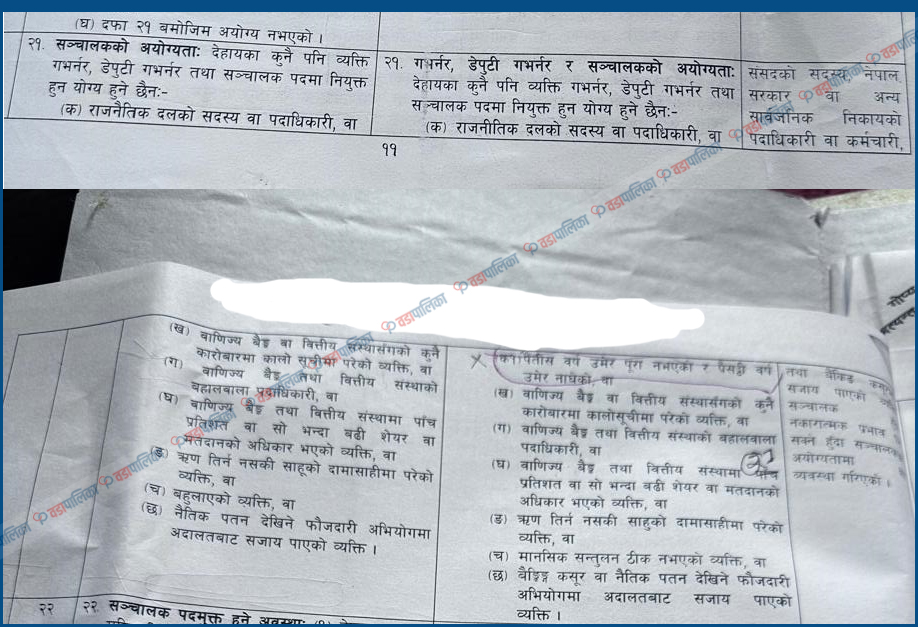 (घ) दफा २१ बमोजिम अयोग्य नभएको ।
२१. सञ्चालकको अयोग्यताः देहायका कुनै पनि व्यक्ति
गभर्नर, डेपुटी गभर्नर तथा सञ्चालक पदमा नियुक्त
हुन योग्य हुने छैनः-
(क) राजनैतिक दलको सदस्य वा पदाधिकारी, वा
२१. गभर्नर, डेपुटी गभर्नर र सञ्चालकको अयोग्यताः
देहायका कुनै पनि व्यक्ति गभर्नर, डेपुटी गभर्नर तथा
सञ्चालक पदमा नियुक्त हुन योग्य हुने छैनः-
(क) राजनीतिक दलको सदस्य वा पदाधिकारी, वा
संसदको सदस्य, नेपाल
सरकार वा अन्य
सार्वजनिक निकायको
पदाधिकारी वा कर्मचारी,
११
(ख) वाणिज्य बैङ्क वा वित्तीय संस्थासंगको कुनै
कारोबारमा कालो सूचीमा परेको व्यक्ति, वा
(ग) वाणिज्य बैङ्क तथा वित्तीय संस्थाको
बहालबाला पदाधिकारी, वा
(घ) वाणिज्य बैङ्क तथा वित्तीय संस्थामा पाँच
प्रतिशत वा सो भन्दा बढी शेयर वा
मतदानको अधिकार भएको व्यक्ति, वा
(ङ) ऋण तिर्न नसकी साहूको दामासाहीमा परेको
व्यक्ति, वा
(च) बहुलाएको व्यक्ति, वा
(छ) नैतिक पतन देखिने फौजदारी अभियोगमा
अदालतबाट सजाय पाएको व्यक्ति ।
(क१) पैंतीस वर्ष उमेर पूरा नभएको र पैंसट्ठी वर्ष
उमेर नाघेको, वा
(ख) वाणिज्य बैङ्क वा वित्तीय संस्थासँगको कुनै
कारोबारमा कालोसूचीमा परेको व्यक्ति, वा
(ग) वाणिज्य बैङ्क तथा वित्तीय संस्थाको बहालबाला
पदाधिकारी, वा
(घ) वाणिज्य बैङ्क तथा वित्तीय संस्थामा पाँच
प्रतिशत वा सो भन्दा बढी शेयर वा मतदानको
अधिकार भएको व्यक्ति, वा
(ङ) ऋण तिर्न नसकी साहुको दामासाहीमा परेको
व्यक्ति, वा
(च) मानसिक सन्तुलन ठीक नभएको व्यक्ति, वा
(छ) बैङ्किङ्ग कसूर वा नैतिक पतन देखिने फौजदारी
अभियोगमा अदालतबाट सजाय पाएको
व्यक्ति ।
तथा बैंकिङ कसूर
सजाय पाएकी
सञ्चालक
नकारात्मक प्रभाव
सक्ने हुँदा सञ्चालक
अयोग्यतामा
व्यवस्था गरिएको ।
२२
२२ सञ्चालक पदमुक्त हुने अवस्थाः
वडापालिका